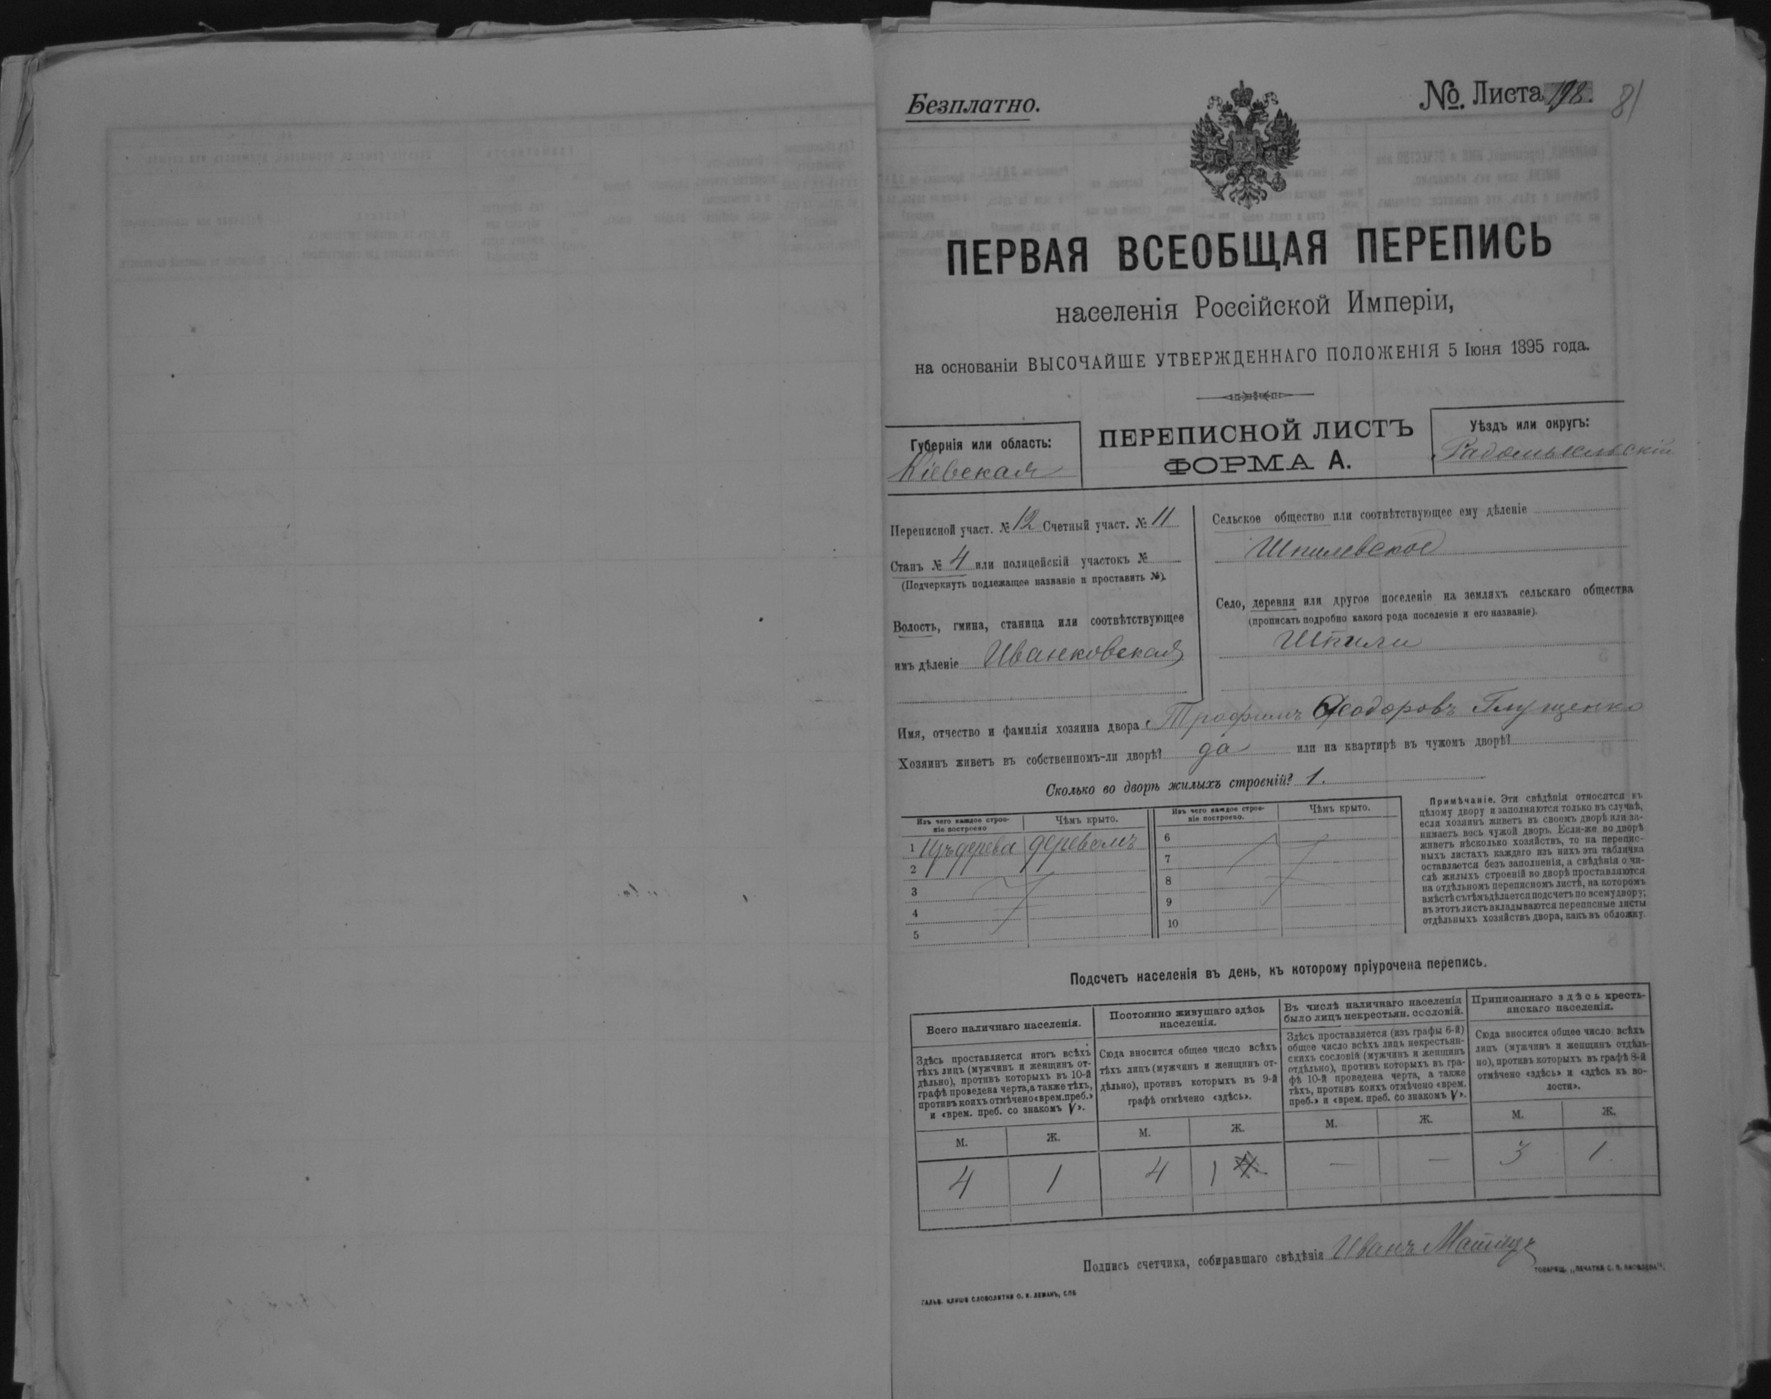 Безплатно.
№. Листа 198. 81
ПЕРВАЯ ВСЕОБЩАЯ ПЕРЕПИСЬ
населенія Россійской Имперіи,
на основаніи ВЫСОЧАЙШЕ УТВЕРЖДЕННАГО ПОЛОЖЕНІЯ 5 Іюня 1895 года.
Губернія или область:
Кіевская
ПЕРЕПИСНОЙ ЛИСТЪ
ФОРМА А.
Уѣздъ или округъ:
Радомысльскій
Переписной участ. № 12 Счетный участ. № 11
Станъ № 4 или полицейскій участокъ №
(Подчеркнуть подлежащее названіе и проставить №).
Волость, гмина, станица или соотвѣтствующее
имъ дѣленіе Иванковская
Сельское общество или соотвѣтствующее ему дѣленіе
Шпилевское
Село, деревня или другое поселеніе на земляхъ сельскаго общества
(прописать подробно какого рода поселеніе и его названіе).
Шпили
Имя, отчество и фамилія хозяина двора Трофимъ Феодоровъ Глущенко
Хозяинъ живетъ въ собственномъ-ли дворѣ? да или на квартирѣ въ чужомъ дворѣ?
Сколько во дворѣ жилыхъ строеній? 1.
Изъ чего каждое строе-
ніе построено
Чѣмъ крыто.
Изъ чего каждое строе-
ніе построено.
Чѣмъ крыто.
1 Изъ дерева деревомъ
2
3
4
5
6
7
8
9
10
Примѣчаніе. Эти свѣдѣнія относятся къ
цѣлому двору и заполняются только въ случаѣ,
если хозяинъ живетъ въ своемъ дворѣ или за-
нимаетъ весь чужой дворъ. Если-же во дворѣ
живетъ нѣсколько хозяйствъ, то на перепис-
ныхъ листахъ каждаго изъ нихъ эта табличка
оставляется безъ заполненія, а свѣдѣнія о чи-
слѣ жилыхъ строеній во дворѣ проставляются
на отдѣльномъ переписномъ листѣ, на которомъ
вмѣстѣ съ тѣмъ дѣлается подсчетъ по всему двору;
въ этотъ листъ вкладываются переписные листы
отдѣльныхъ хозяйствъ двора, какъ въ обложку.
Подсчетъ населенія въ день, къ которому пріурочена перепись.
Всего наличнаго населенія.
Здѣсь проставляется итогъ всѣхъ
тѣхъ лицъ (мужчинъ и женщинъ от-
дѣльно), противъ которыхъ въ 10-й
графѣ проведена черта, а также тѣхъ,
противъ коихъ отмѣчено «врем. преб.»
и «врем. преб. со знакомъ V».
Постоянно живущаго здѣсь
населенія.
Сюда вносится общее число всѣхъ
тѣхъ лицъ (мужчинъ и женщинъ от-
дѣльно), противъ которыхъ въ 9-й
графѣ отмѣчено «здѣсь».
Въ числѣ наличнаго населенія
было лицъ некрестьян. сословій.
Здѣсь проставляется (изъ графы 6-й)
общее число всѣхъ лицъ некрестьян-
скихъ сословій (мужчинъ и женщинъ
отдѣльно), противъ которыхъ въ гра-
фѣ 10-й проведена черта, а также
тѣхъ, противъ коихъ отмѣчено «врем.
преб.» и «врем. преб. со знакомъ V».
Приписаннаго здѣсь кресть-
янскаго населенія.
Сюда вносится общее число всѣхъ
лицъ (мужчинъ и женщинъ отдѣль-
но), противъ которыхъ въ графѣ 8-й
отмѣчено «здѣсь» и «здѣсь въ во-
лости».
М. Ж. М. Ж. М. Ж. М. Ж.
4 1 4 1 — — 3 1
Подпись счетчика, собиравшаго свѣдѣнія Иванъ
ГАЛЬВ. КЛИШЕ СЛОВОЛИТНИ О. И. ЛЕМАНЪ, СПБ
ТОВАРИЩ. „ПЕЧАТНЯ С. П. ЯКОВЛЕВА".